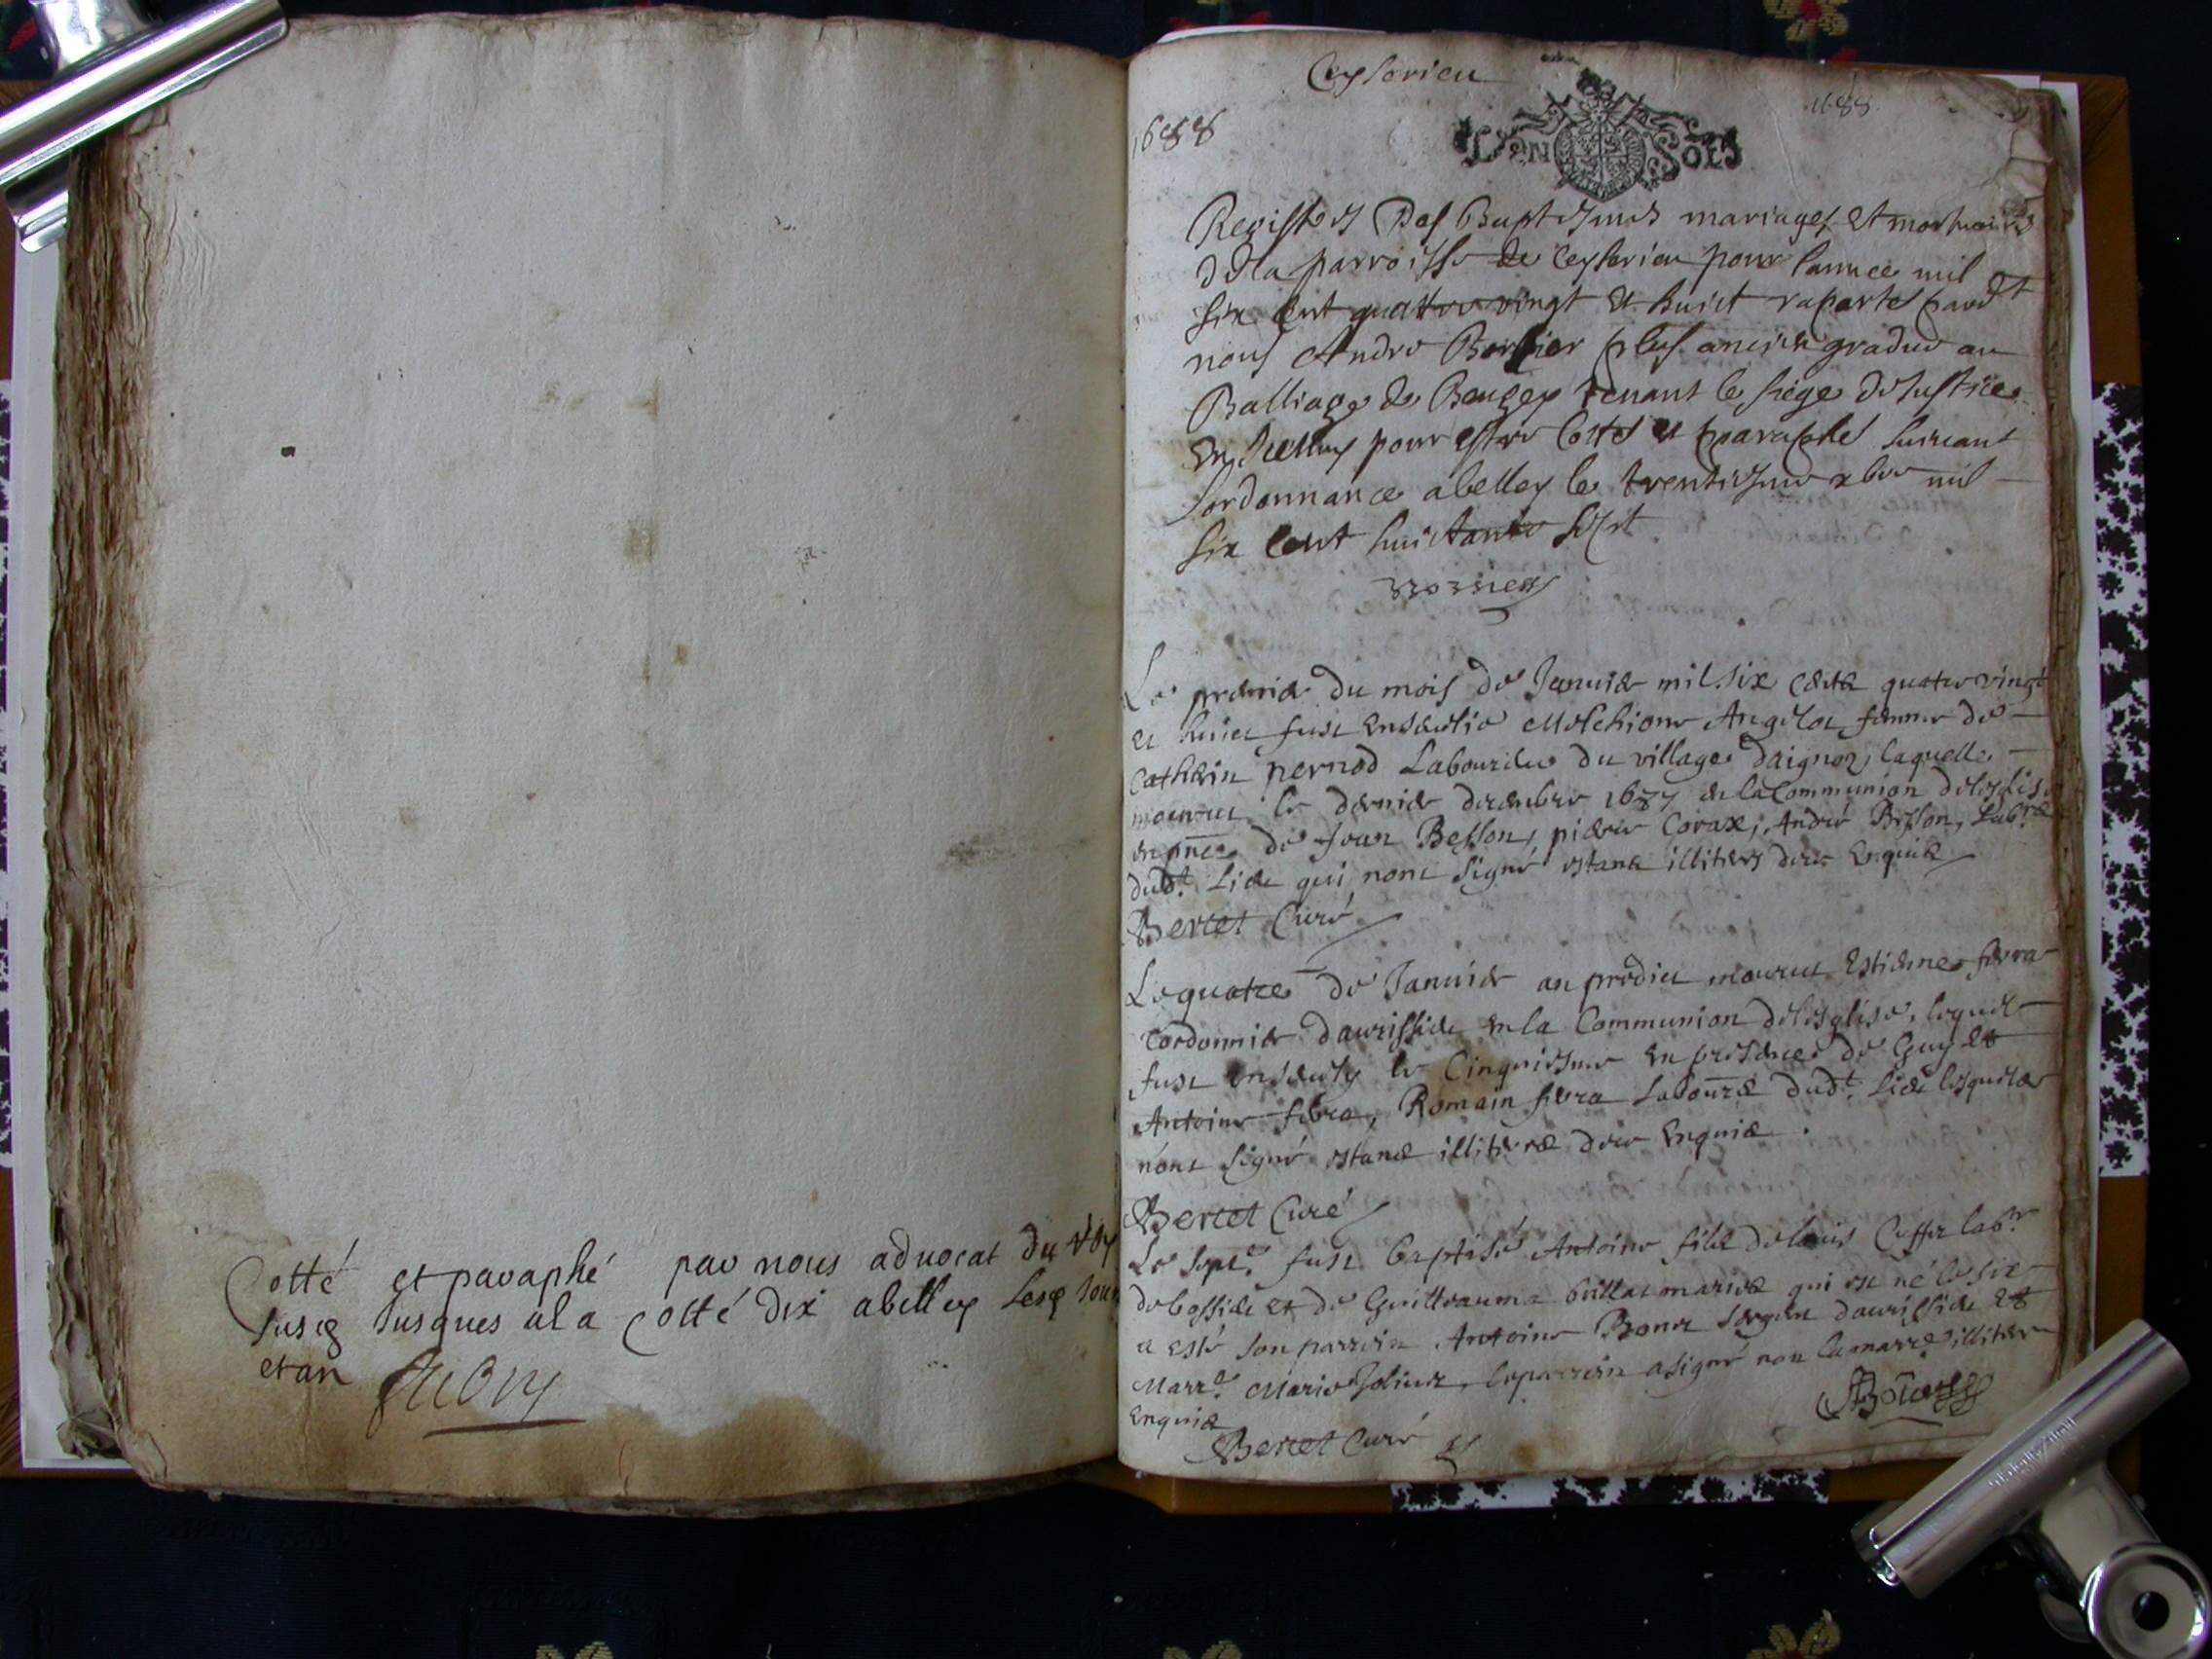 Cotté et paraphé par nous advocat du Roy
susig Jusques a la Cotté dix a belley Les Jour
et an
Ceyserieu
1688
1688
UN SOLS
Registres Des Baptesmes mariages et mortuaires
de la parroisse de Ceyserieu pour lannee mil
six cent quattre vingt et huict raporté pardt
nous Andre Borsier plus ancien gradue au
Balliage de Beugey tenant le siege de Justice
En Icelluy pour estre Cottés et paraphés suivant
lordonnance a belley le trentiesme xbre mil
six cent huictante sept
Le premier du mois de Januier mil six cents quatre vingt
et huict fust Enseuelie Melchione Angelot femme de
Cathérin pernod Laboureur du village daignoz laquelle
mourut le dernier decembre 1687 en la Communion de lesglise
en pnce de Jean Besson, pierre Corax, André Bisson, Labrs
dudt. Lieu qui nont signé estans illiteres deue Enquis
Bertet Curé
Le quatre de Januier an predict mourut Estienne ferra
Cordonnier daurissieu en la Communion de lesglise, lequel
fust enseuely le Cinquiesme En presence de Guy et
Antoine ferra, Romain ferra Laboure dudt. Lieu lesquels
nont signé estans illiteres deue Enquis.
Bertet Curé
Le sept.e fust baptisé Antoine fils de louis Cuffer labr
de bossieu et de Guillauma buttat mariés qui est né le six
a esté son parrein Antoine Bonet sergent daurissieu et
Marr.e Marie Joliuet, le parrein a signé non la marre illitere
Enquis
Bertet Curé